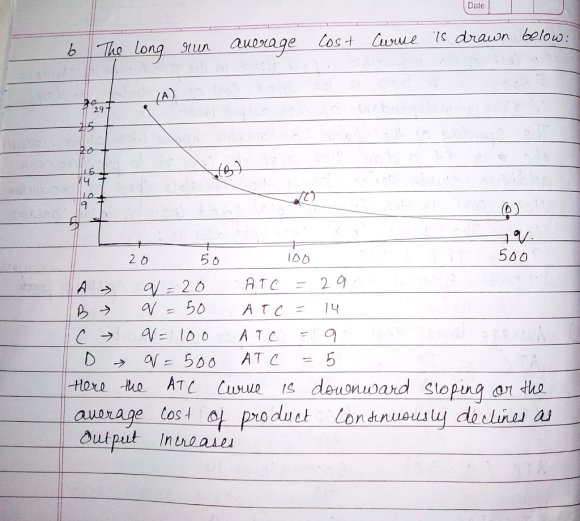 Date
b The long run average Cost Curve is drawn below:
30
29
(A)
25
20
15
14
(B)
10
9
(C)
5
(D)
q.
20 50 100 500
A → q = 20 ATC = 29
B → q = 50 ATC = 14
C → q = 100 ATC = 9
D → q = 500 ATC = 5
Here the ATC Curve is downward sloping or the
average Cost of product Continuously declines as
Output Increases